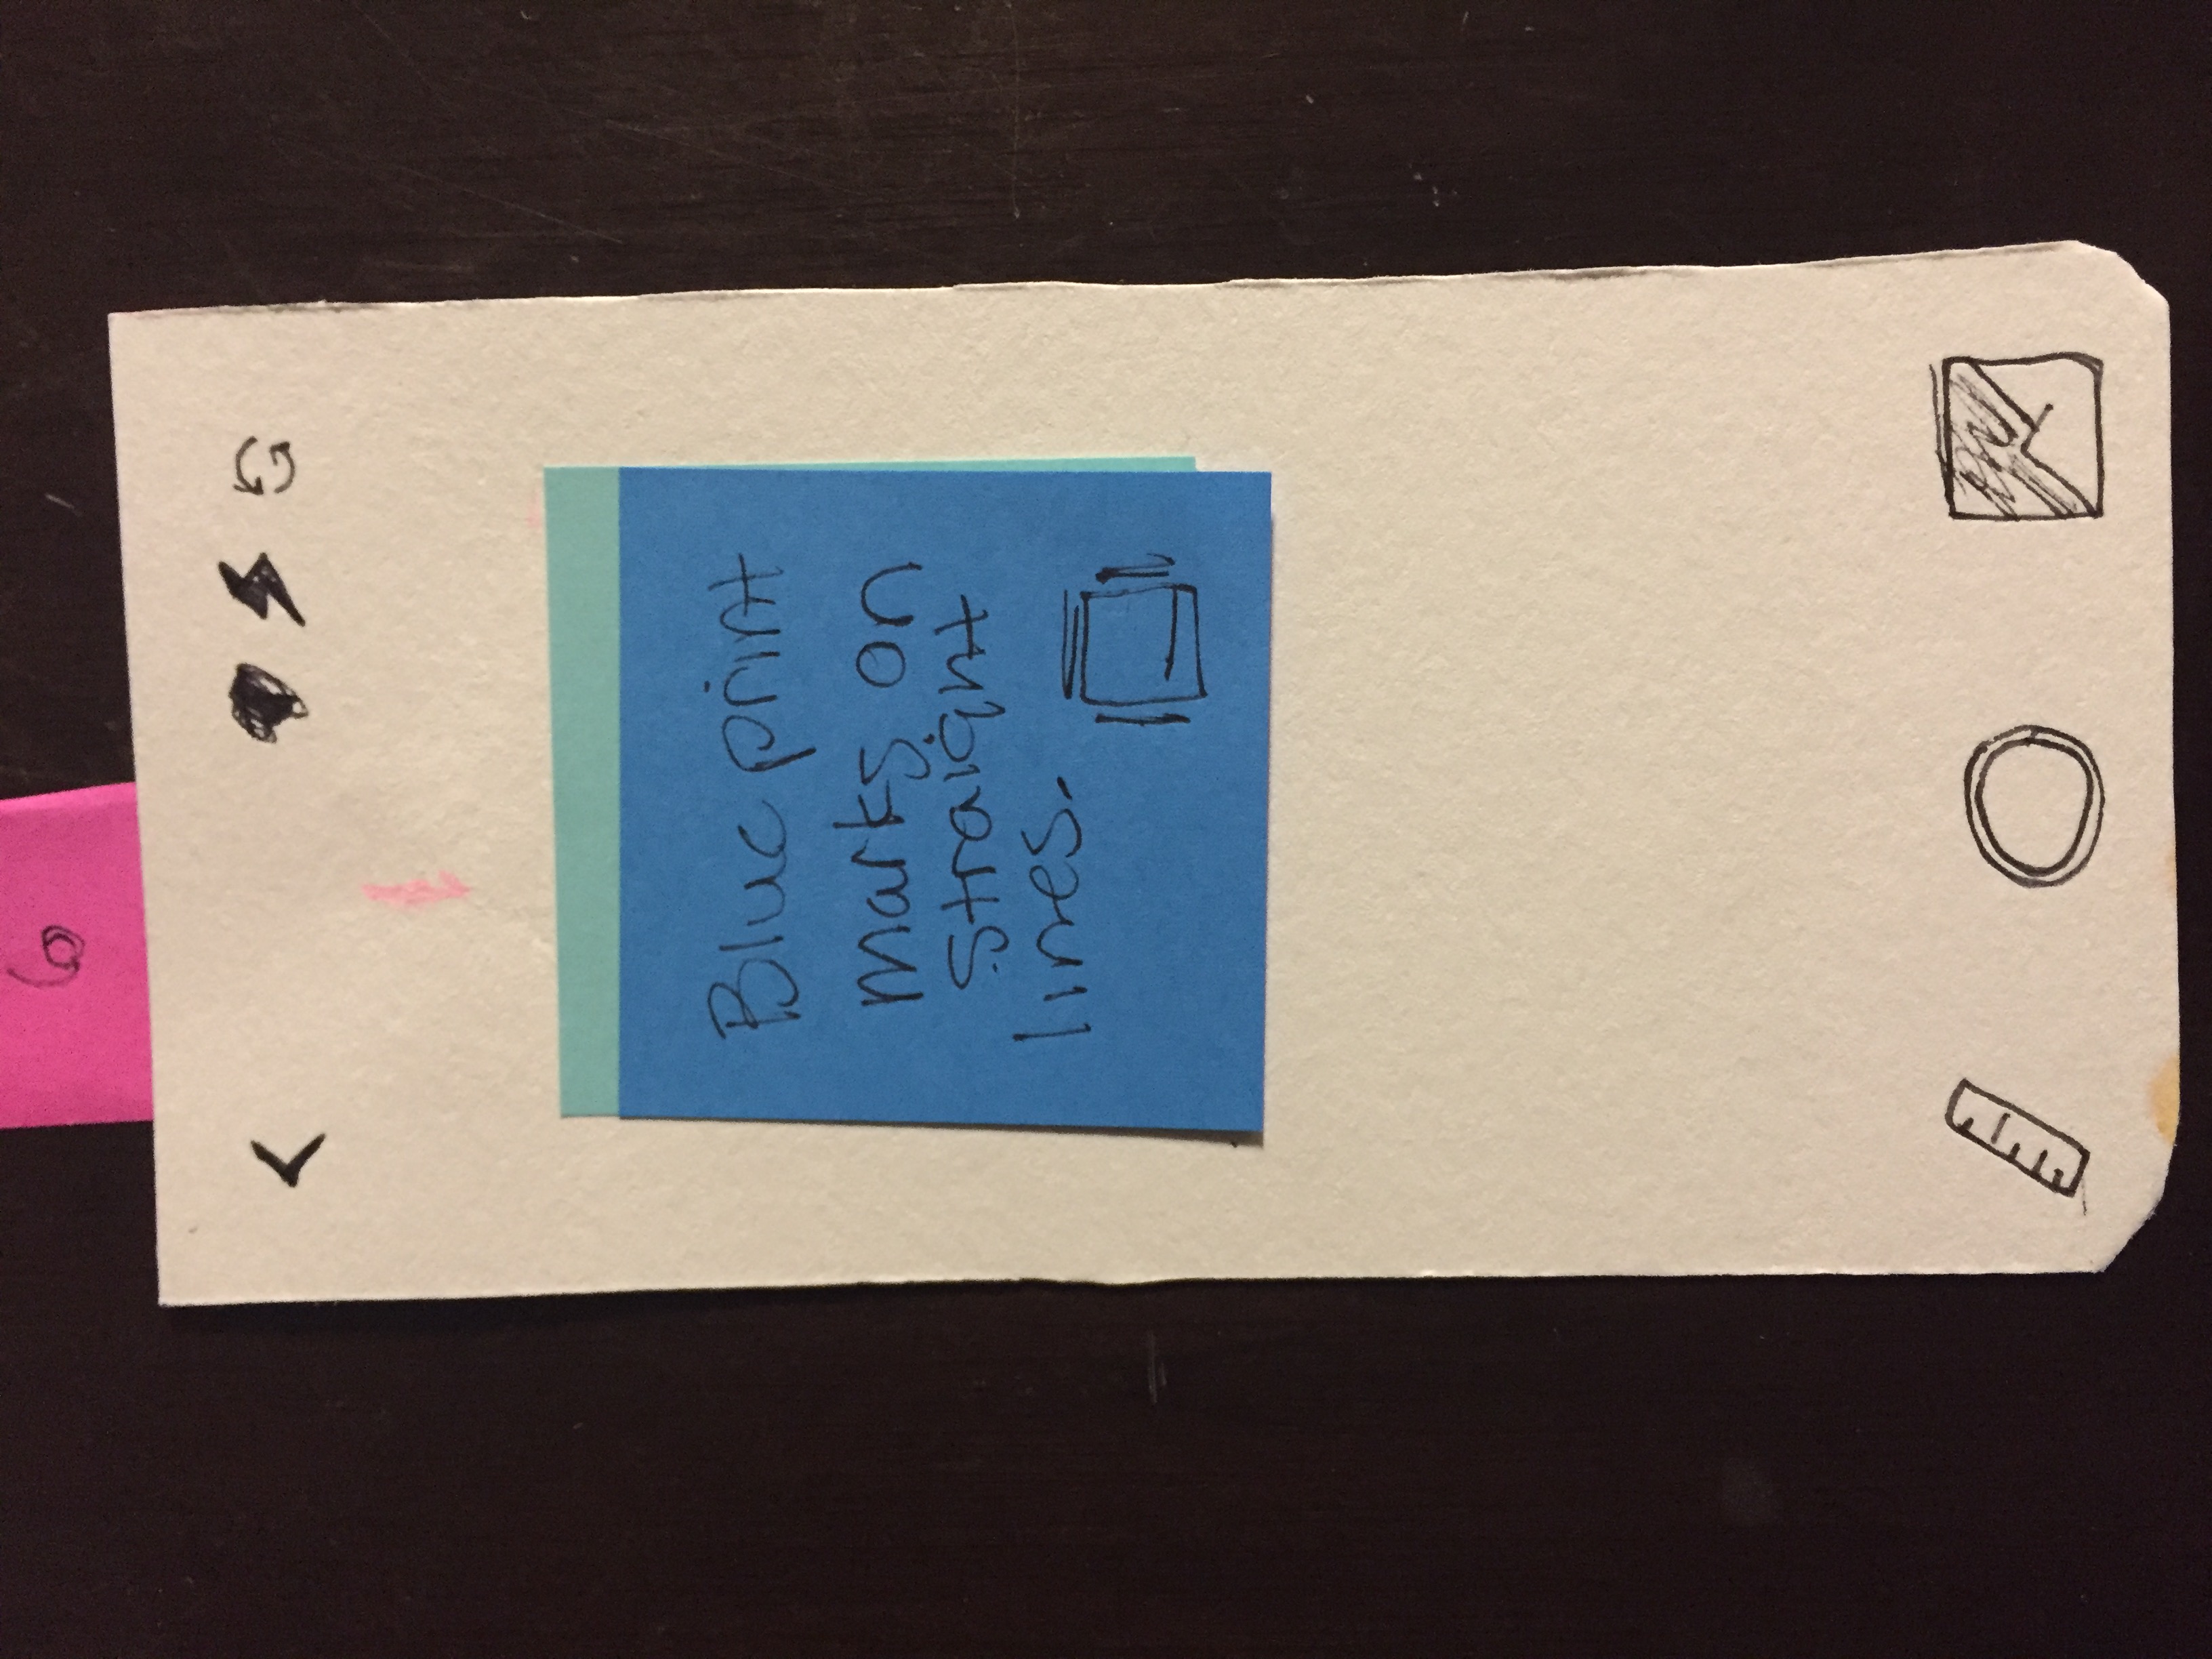 6
Blue print
marks on
straight
lines.